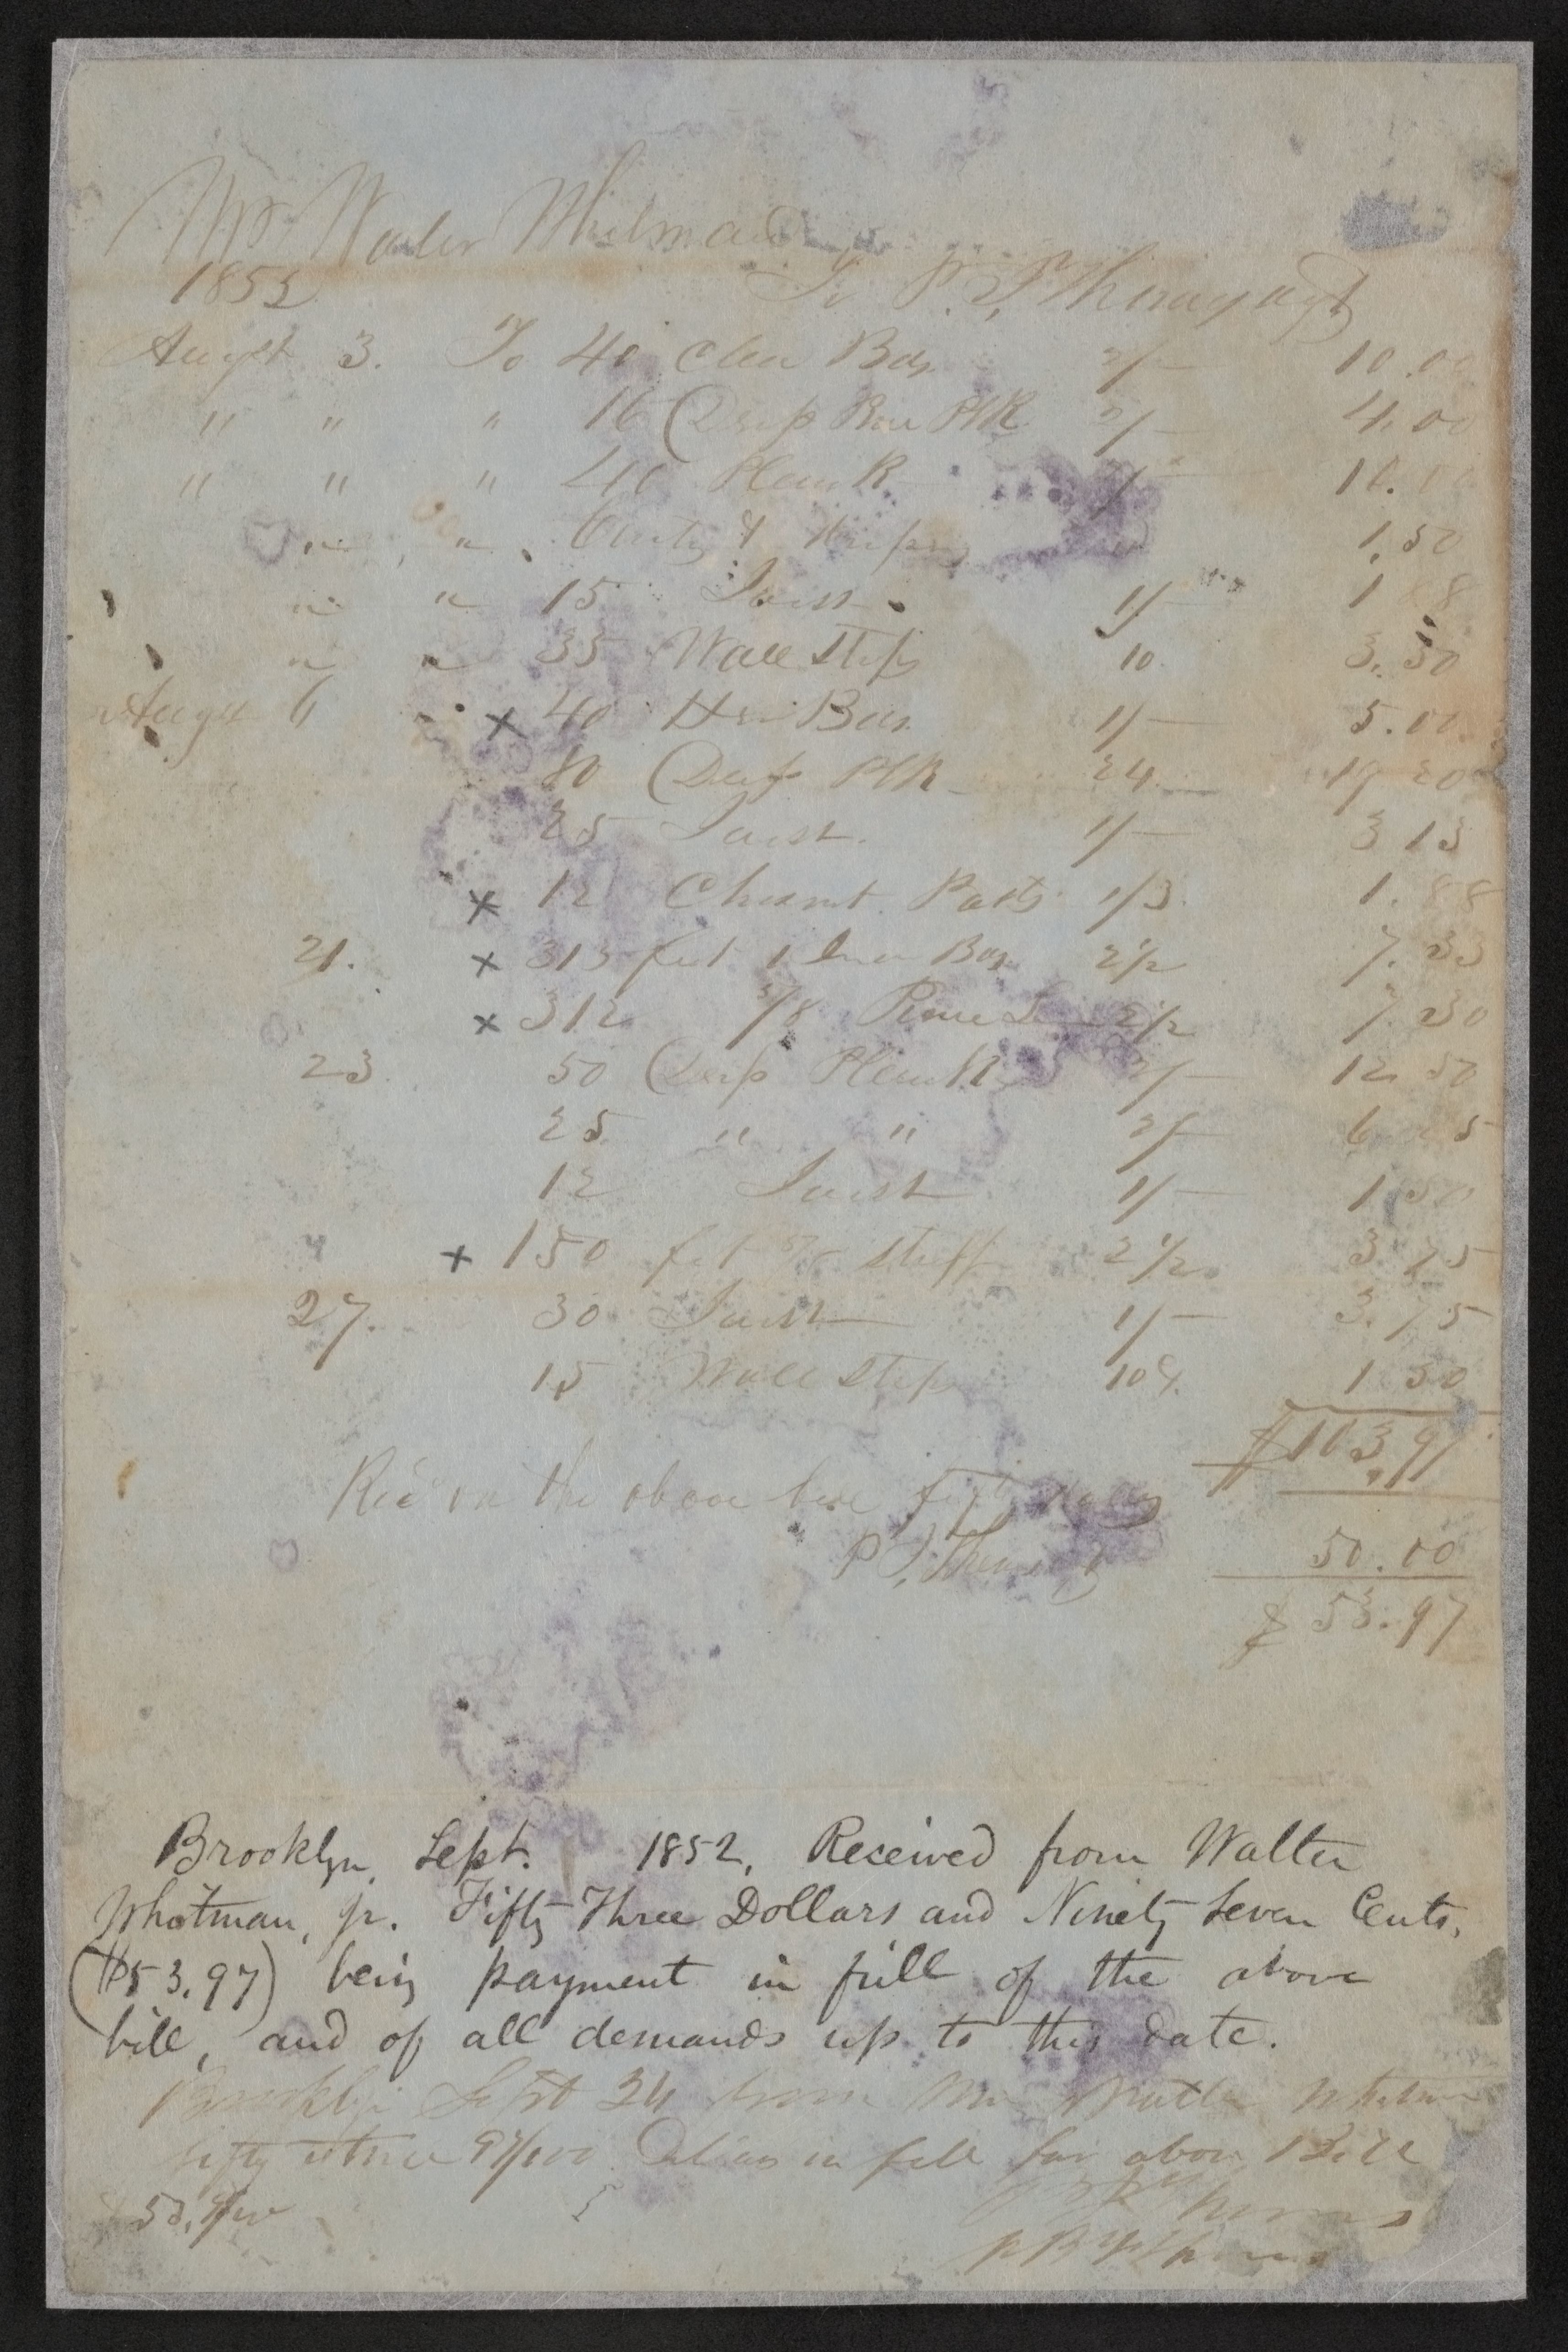 Mr Walter Whitman
1852 To P. 
Augst 3. To 40 Clear Bds 2/— 10.00
" " " 16 Rou Plk 2/— 4.00
" " " 40 Plank 16.00
" " & Strips 1.50
" " 15 Joist 1/— 1 88
" " 35 Wall Strips 10 3.50
Augst 6 x 40 Bds. 1/— 5.00
80 Plk 24 19 20
25 Joist. 1/— 3 13
x 12 Chesnut. Posts 1/3 1.88
21. x 313 feet 1 Inch Bds 2 1/2 7.33
x 312 5/8 Pine 2 1/2 7.30
23 50 Plank 2/— 12 50
25 " " 2/— 6 25
12 Joist 1/— 1 50
x 150 feet 5/8 stuff 2 1/2 3.75
27. 30 Joist 1/— 3.75
15 Wall Strips 10 1 50
$113,97
Recd on the above bill fifty
50.00
P
$53.97
Brooklyn, Sept. 1852, Received from Walter
Whitman, jr. Fifty Three Dollars and Ninety Seven Cents,
($53.97) being payment in full of the above
bill, and of all demands up to this date.
Brooklyn Sept 24 from Mr Walter Whitman
fifty three 97/100 Dollars in full for above Bill